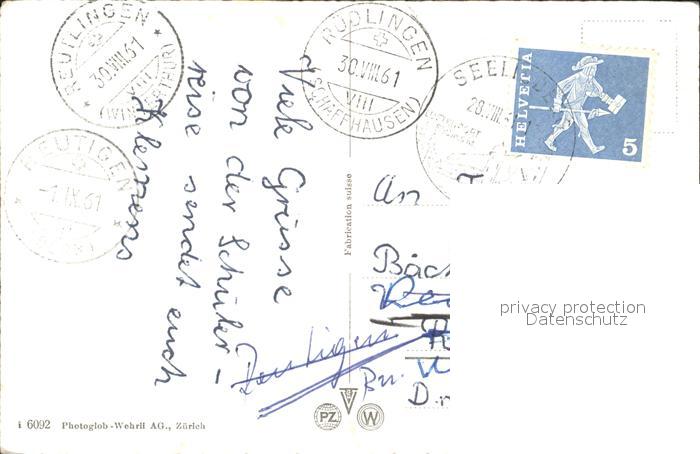 REUTLINGEN
30.VIII.61
VIII
(WINTERTHUR)
RÜDLINGEN
30.VIII.61
VIII
(SCHAFFHAUSEN)
SEEL
28.VIII.
HELVETIA
5
REUTIGEN
-1.IX.61
Viele Grüsse
von der Schüler-
reise sendet euch
Klemens
Fabrication suisse
An
Bäc
Reutigen
Bn.
privacy protection
Datenschutz
i 6092 Photoglob-Wehrli AG., Zürich
PZ
W